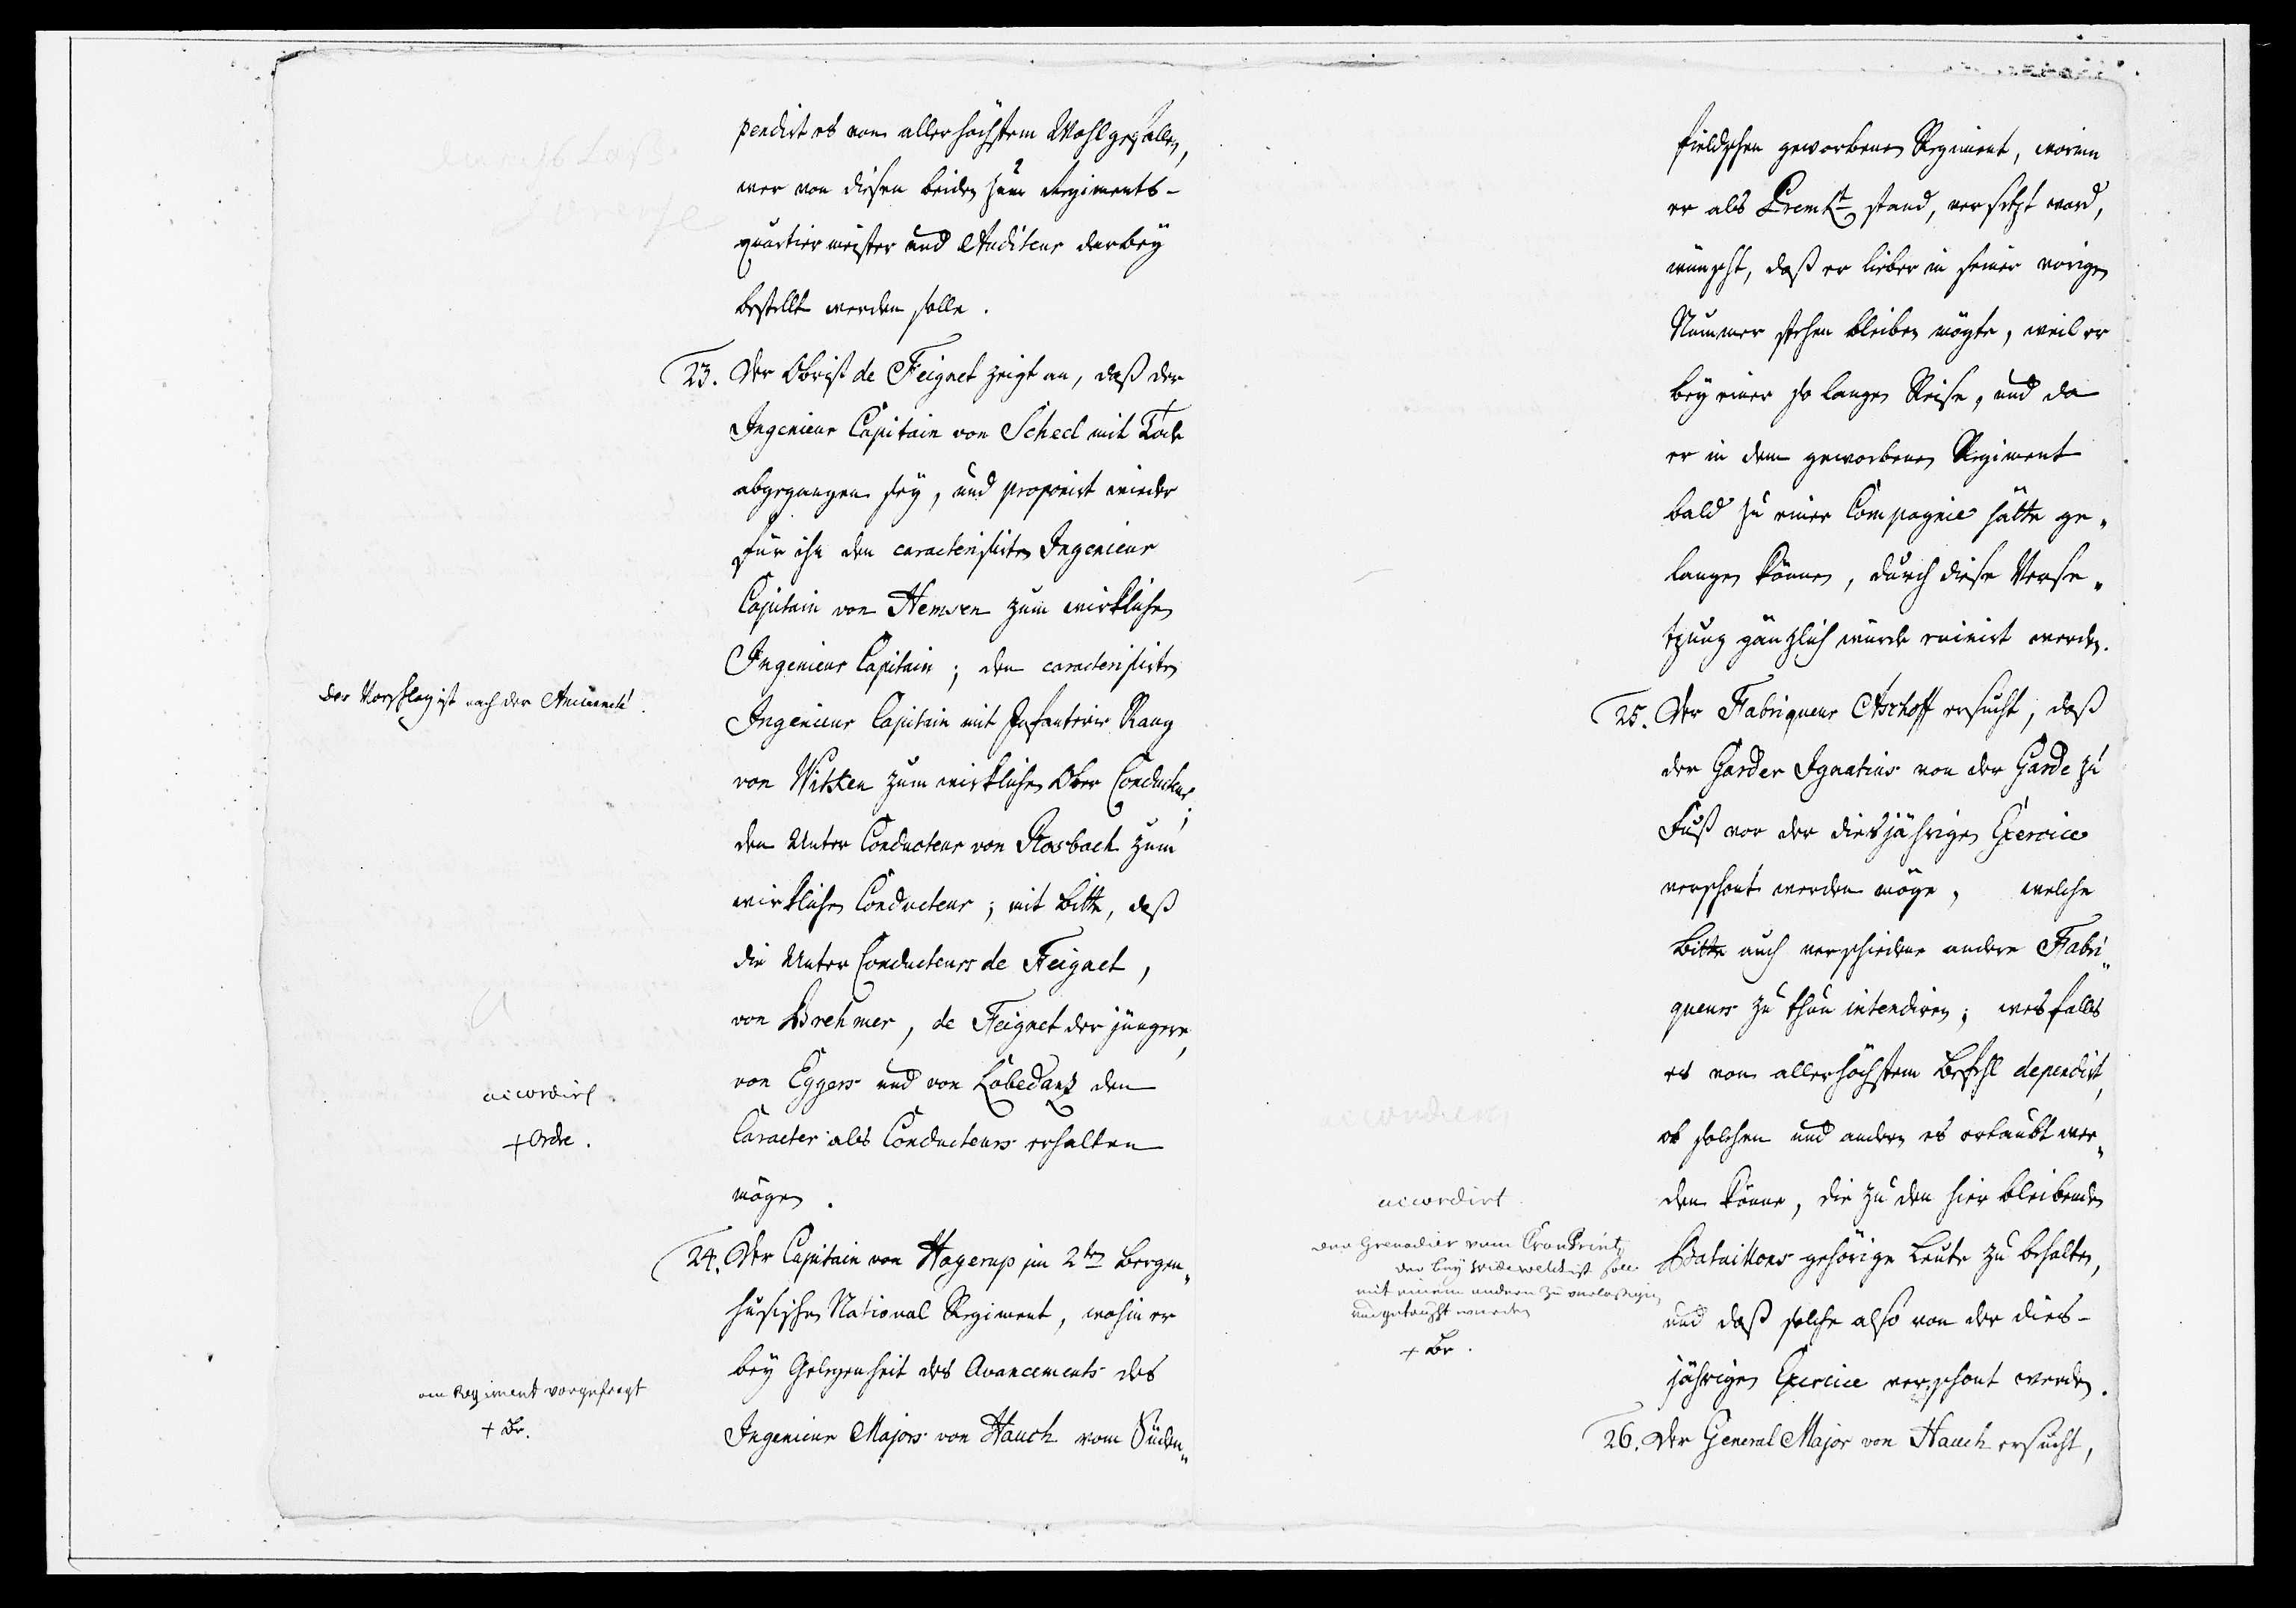 pendirt es vom allerhöchstem Wohlgefallen,
wer von diesen beiden zum Regiments-
quartiermeister und Auditeur darbey
bestellt werden solle.
23. Der Obrist de Feignet zeigt an, daß der
Ingenieur Capitain von Scheel mit Tode
abgegangen sey, und proponirt wieder
für ihn den caracterisirten Ingenieur
Capitain von Hemsen zum wirklichen
Ingenieur Capitain; den caracterisirten
Der Vorschlag ist nach der Ancienneté.
Ingenieur Capitain mit Infanterie Rang
von Witken zum wirklichen Ober Conducteur;
den Unter Conducteur von Rosbach zum
wirklichen Conducteur; mit Bitte, daß
die Unter Conducteurs de Feignet,
von Brehmer, de Feignet der jüngere,
von Eggers und von Lobedantz den
accordirt.
+ Ordre.
Caracter als Conducteurs erhalten
mögen.
24. Der Capitain von Hagerup im 2ten Bergen„
husischen National Regiment, wohin er
bey Gelegenheit des Avancements des
am Regiment vorgefragt
+ Br.
Ingenieur Majors von Hauch vom Süden„
fieldschen geworbenen Regiment, worinn
er als PremLt stand, versetzt ward,
wünscht, daß er lieber in seiner vorigen
Nummer stehen bleiben mögte, weil er
bey einer so langen Reise, und da
er in dem geworbenen Regiment
bald zu einer Compagnie hätte ge„
langen können, durch diese Verse„
tzung gänzlich würde ruinirt werden.
25. Der Fabriqueur Aschoff ersucht, daß
der Garder Ignatius von der Garde zu
Fuß vor der diesjährigen Exercice
verschont werden möge, welche
Bitte auch verschiedene andere Fabri„
queurs zu thun intendiren; wesfalls
es vom allerhöchstem Befehl dependirt,
ob solchen und andern es erlaubt wer„
den könne, die zu den hier bleibenden
accordirt.
der Grenadier vom CronPrintz
der bey ist soll
mit einem andern zu verläßigen
umgetauscht werden
+ Br.
Bataillons gehörige Leute zu behalten,
und daß solche also von der dies-
jährigen Exercice verschont werden.
26. Der General Major von Hauch ersucht,